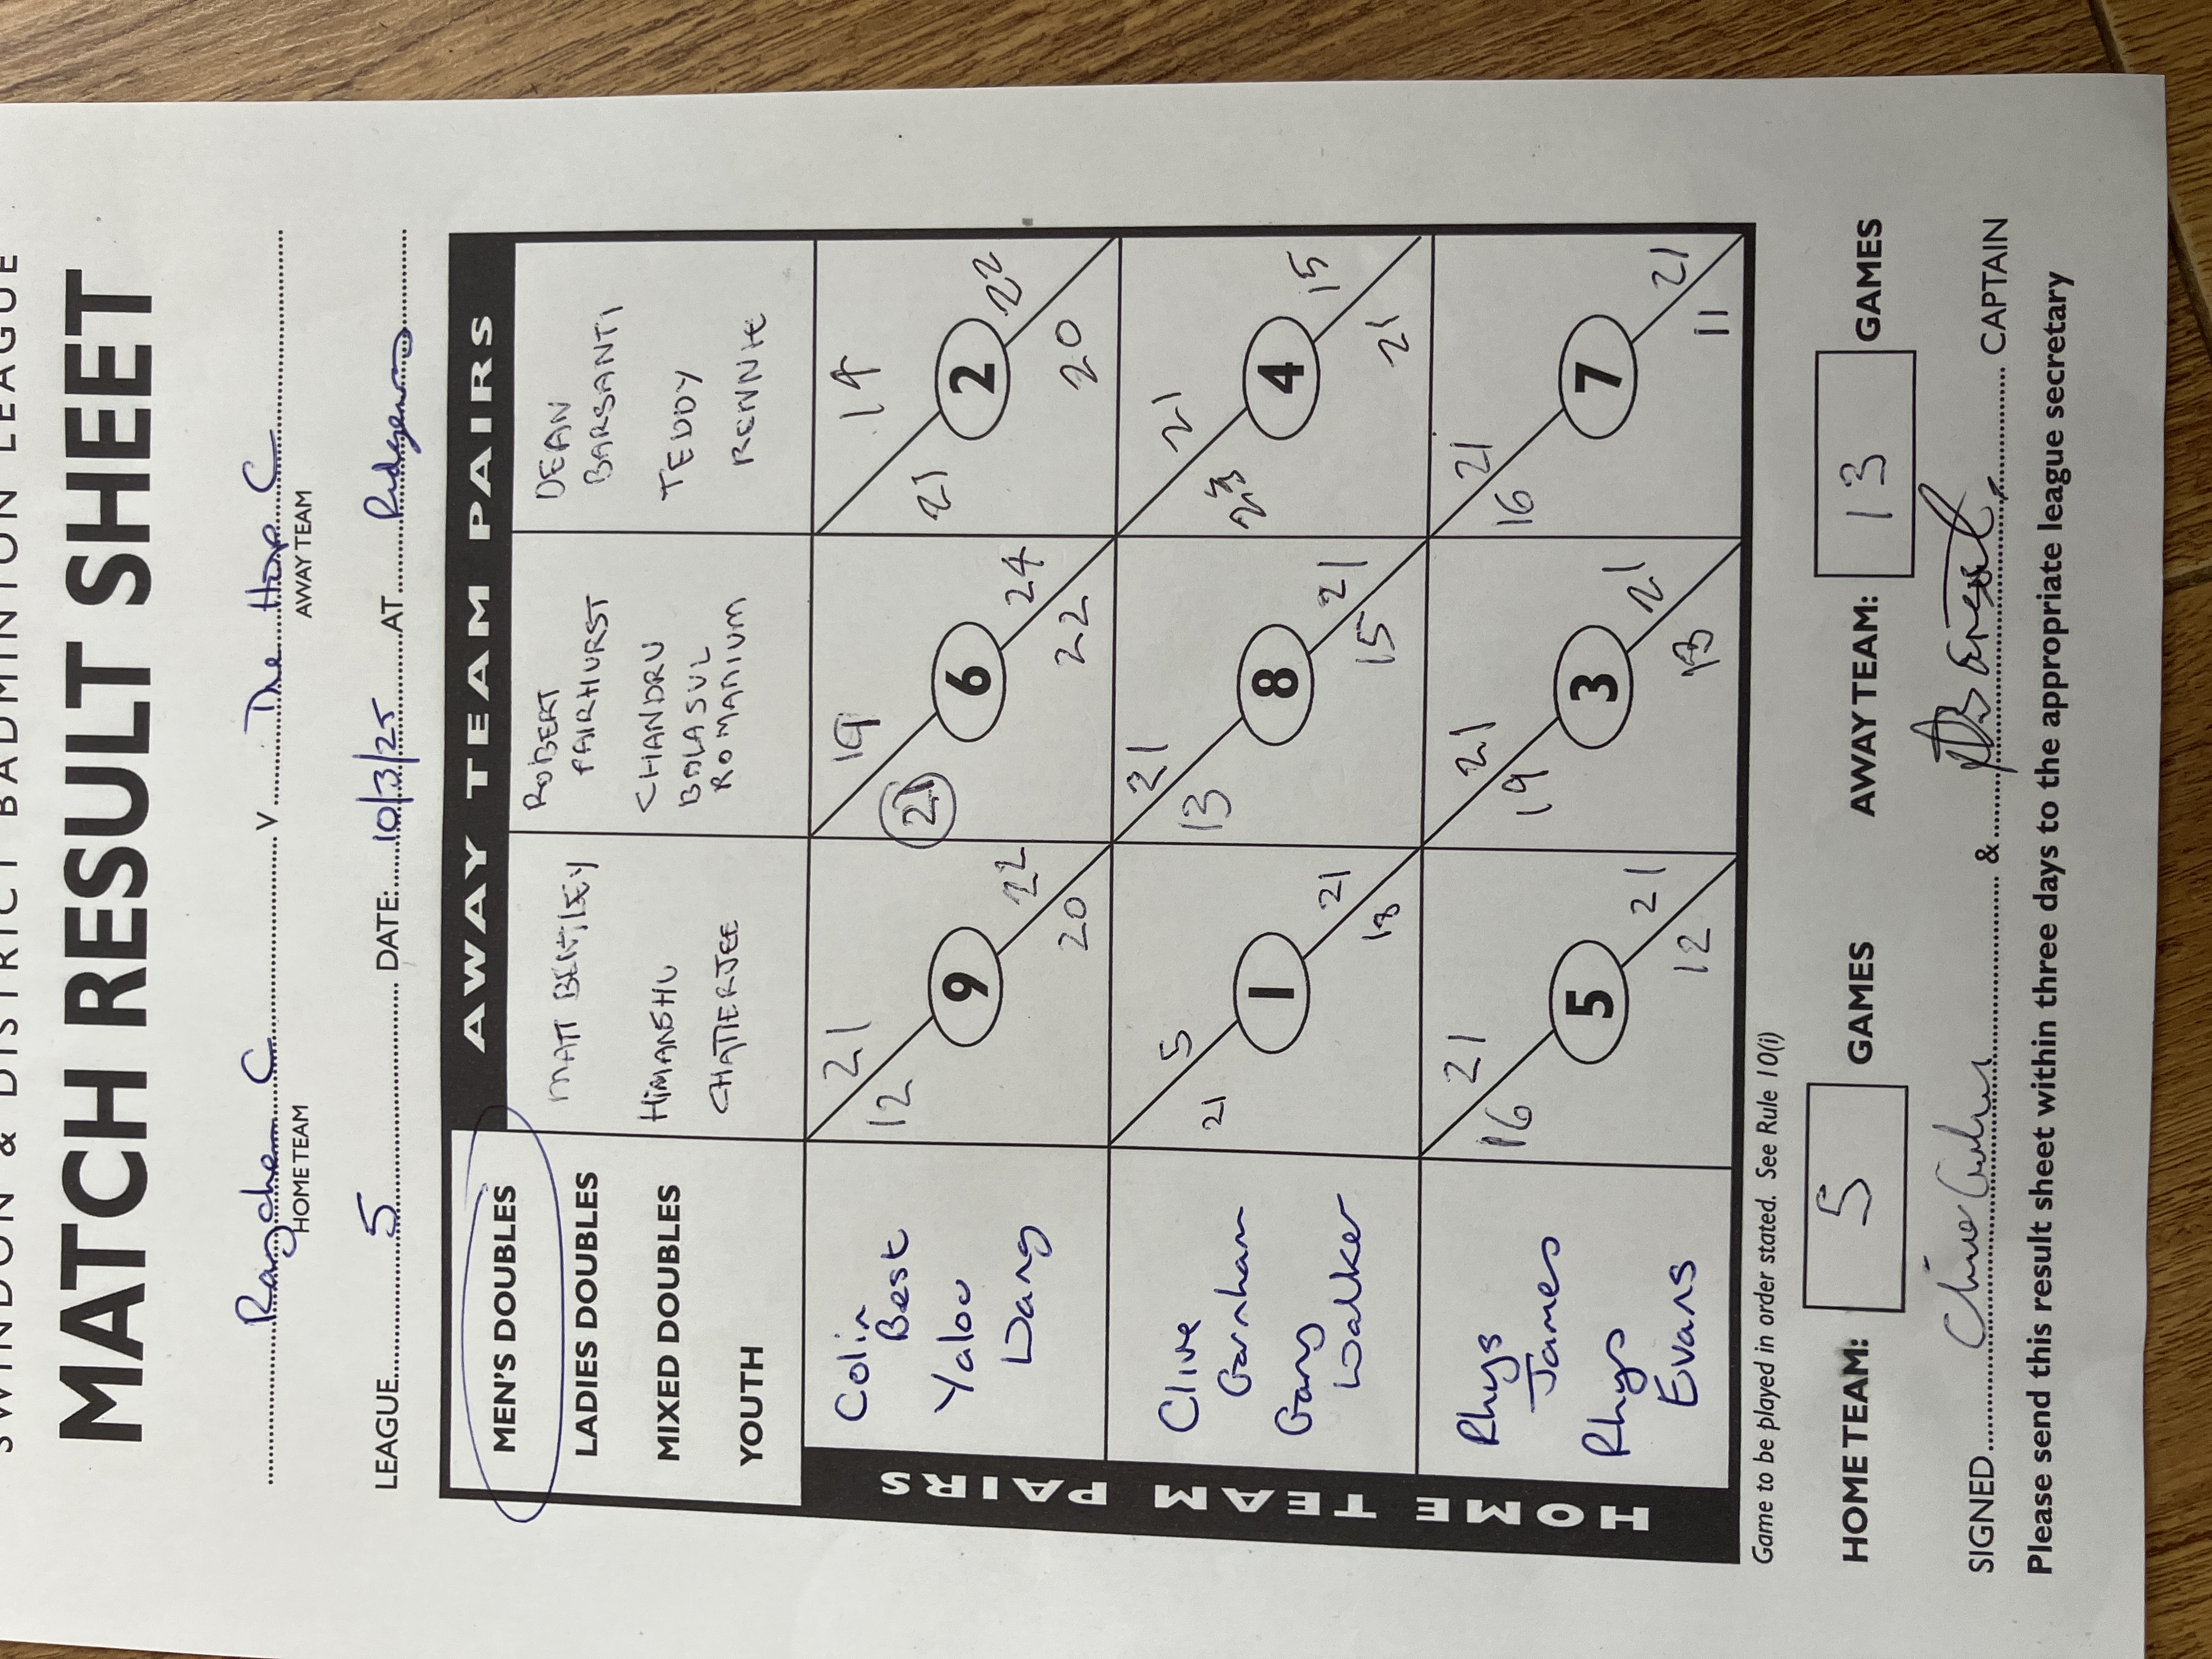 SWINDON & DISTRICT BADMINTON LEAGUE
MATCH RESULT SHEET
Rangchem C V The Hop C
HOME TEAM AWAY TEAM
LEAGUE 5 DATE: 10/3/25 AT
AWAY TEAM PAIRS
MEN'S DOUBLES
LADIES DOUBLES
MIXED DOUBLES
YOUTH
MATT BENTLEY
HIMANSHU
CHATTERJEE
ROBERT
FAIRHURST
CHANDRU
BALASUL
ROMANIUM
DEAN
BARSANTI
TEDDY
RENNIE
HOME TEAM PAIRS
Colin
Best
Yalou
Wang
12 21
9
20 22
21 19
6
22 24
21 14
2
20 22
Clive
Garnham
Gary
Walker
21 5
1
18 21
13 21
8
15 21
23 21
4
21 15
Rhys
James
Rhys
Evans
16 21
5
12 21
19 21
3
21
16 21
7
11 21
Game to be played in order stated. See Rule 10(i)
HOME TEAM: 5 GAMES AWAY TEAM: 13 GAMES
SIGNED & CAPTAIN
Please send this result sheet within three days to the appropriate league secretary